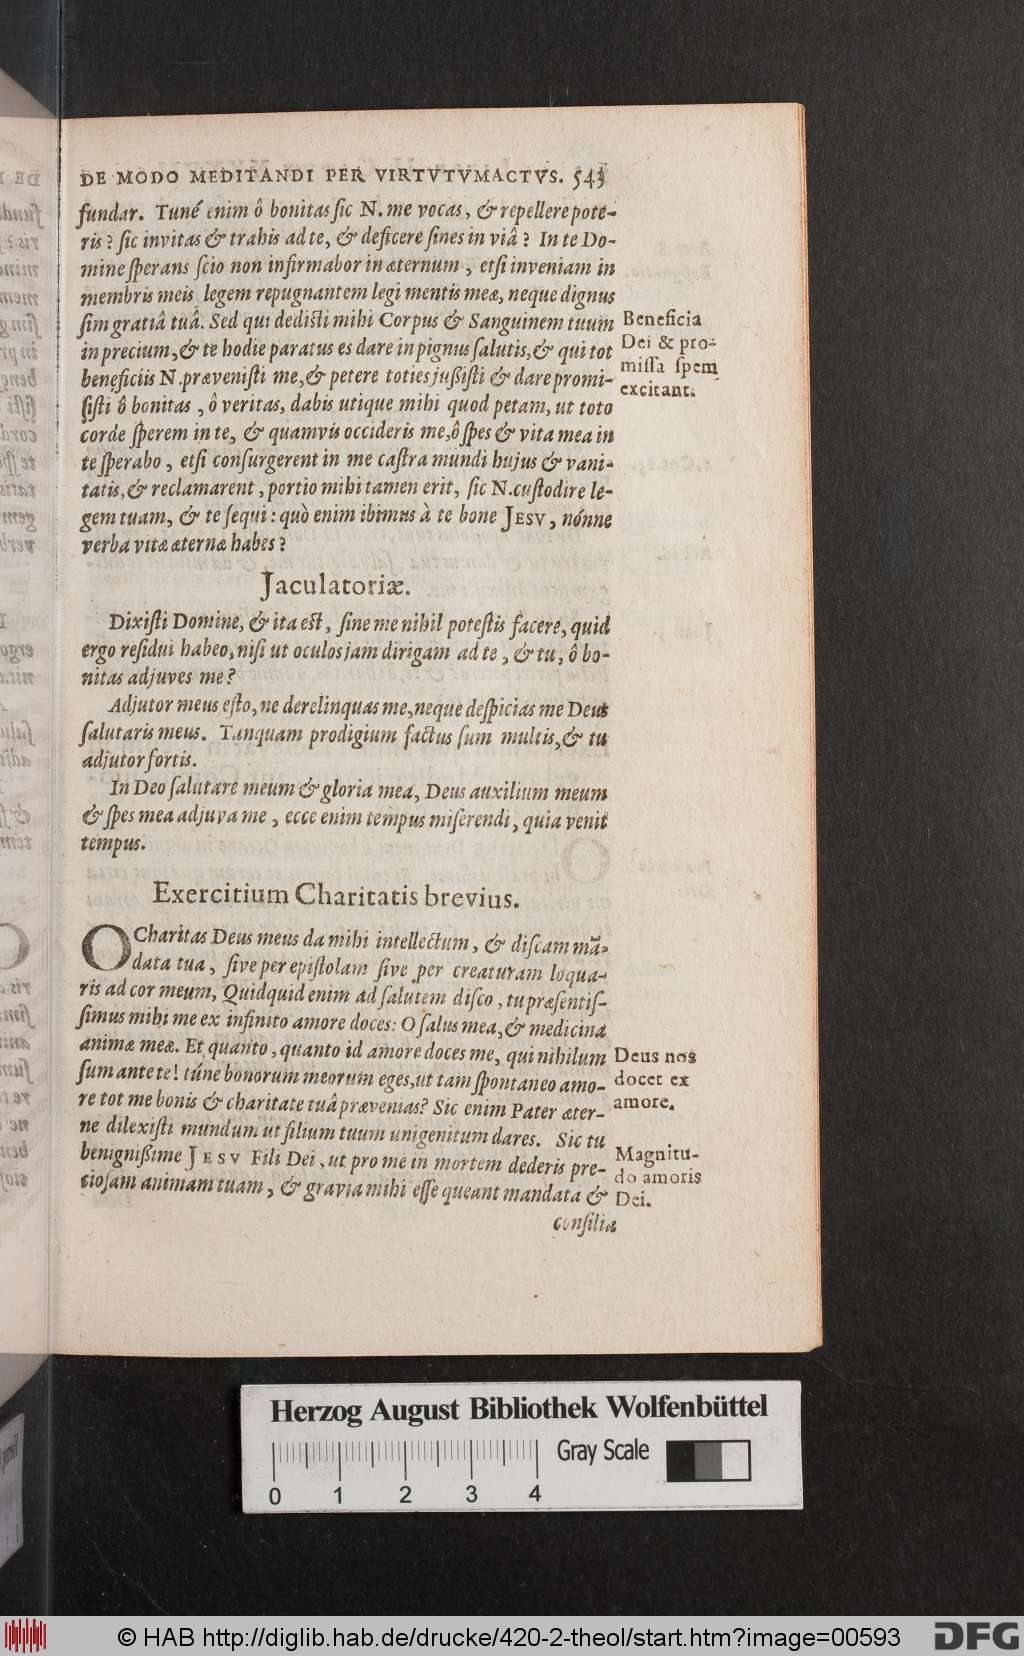 DE MODO MEDITANDI PER VIRTVTVM ACTVS. 543
fundar. Tuné enim ô bonitas sic N. me vocas, & repellere pote-
ris? sic invitas & trahis ad te, & deficere sines in viâ? In te Do-
mine sperans scio non infirmabor in æternum, etsi inveniam in
membris meis legem repugnantem legi mentis meæ, neque dignus
sim gratiâ tuâ. Sed qui dedisti mihi Corpus & Sanguinem tuum
in precium, & te hodie paratus es dare in pignus salutis, & qui tot
beneficiis N. prævenisti me, & petere toties jußisti & dare promi-
sisti ô bonitas, ô veritas, dabis utique mihi quod petam, ut toto
corde sperem in te, & quamvis occideris me, ô spes & vita mea in
te sperabo, etsi consurgerent in me castra mundi hujus & vani-
tatis, & reclamarent, portio mihi tamen erit, sic N. custodire le-
gem tuam, & te sequi: quò enim ibimus à te bone JESV, nónne
verba vitæ æternæ habes?
Beneficia
Dei & pro-
missa spem
excitant.
Jaculatoriæ.
Dixisti Domine, & ita est, sine me nihil potestis facere, quid
ergo residui habeo, nisi ut oculos jam dirigam ad te, & tu, ô bo-
nitas adjuves me?
Adjutor meus esto, ne derelinquas me, neque despicias me Deus
salutaris meus. Tanquam prodigium factus sum multis, & tu
adjutor fortis.
In Deo salutare meum & gloria mea, Deus auxilium meum
& spes mea adjuva me, ecce enim tempus miserendi, quia venit
tempus.
Exercitium Charitatis brevius.
O Charitas Deus meus da mihi intellectum, & discam mã-
data tua, sive per epistolam sive per creaturam loqua-
ris ad cor meum, Quidquid enim ad salutem disco, tu præsentis-
simus mihi me ex infinito amore doces: O salus mea, & medicina
animæ meæ. Et quanto, quanto id amore doces me, qui nihilum
sum ante te! túne bonorum meorum eges, ut tam spontaneo amo-
re tot me bonis & charitate tuâ prævenias? Sic enim Pater æter-
ne dilexisti mundum ut filium tuum unigenitum dares. Sic tu
benignißime JESV Fili Dei, ut pro me in mortem dederis pre-
tiosam animam tuam, & gravia mihi esse queant mandata &
Deus nos
docet ex
amore.
Magnitu-
do amoris
Dei.
consilia
Herzog August Bibliothek Wolfenbüttel
Gray Scale
0 1 2 3 4
© HAB http://diglib.hab.de/drucke/420-2-theol/start.htm?image=00593
DFG